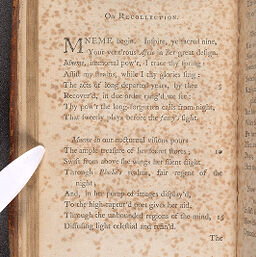 On Recollection.
MNEME begin. Inspire, ye sacred nine,
Your vent'rous Afric in her great design.
Mneme, immortal pow'r, I trace thy spring:
Assist my strains, while I thy glories sing:
The acts of long departed years, by thee 5
Recover'd, in due order rang'd we see:
Thy pow'r the long-forgotten calls from night,
That sweetly plays before the fancy's sight.
Mneme in our nocturnal visions pours
The ample treasure of her secret stores; 10
Swift from above she wings her silent flight
Through Phœbe's realms, fair regent of the
night;
And, in her pomp of images display'd,
To the high-raptur'd poet gives her aid,
Through the unbounded regions of the mind, 15
Diffusing light celestial and refin'd.
The